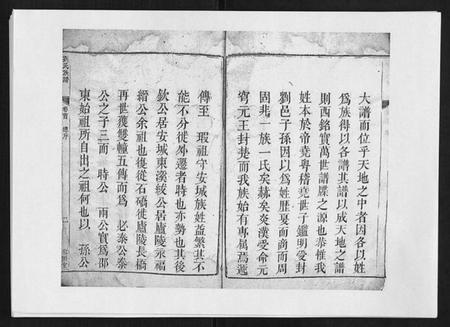 大譜而位乎天地之中者因各以姓
為族得以各譜其譜以成天地之譜
則西銘實萬世譜牒之源也恭惟我
姓本於帝堯粵稽堯世子鑑明受封
劉邑子孫因以為姓歷夏而商而周
固非一族一氏矣赫矣炎漢受命元
王封楚而我族始有專屬焉
傳至 瑕祖守安城族姓益繁其不
能不分徙外遷者時也亦勢也其後
欽公居安城東溪綏公居廬陵永福
縉公余祖也復從石磵徙廬陵長橋
再世獲雙幢五傳而為 必泰公泰
公之子三而 時公 雨公實為邵
東始祖所自出之祖何也以 孫公
劉氏族譜
卷首 總序
二